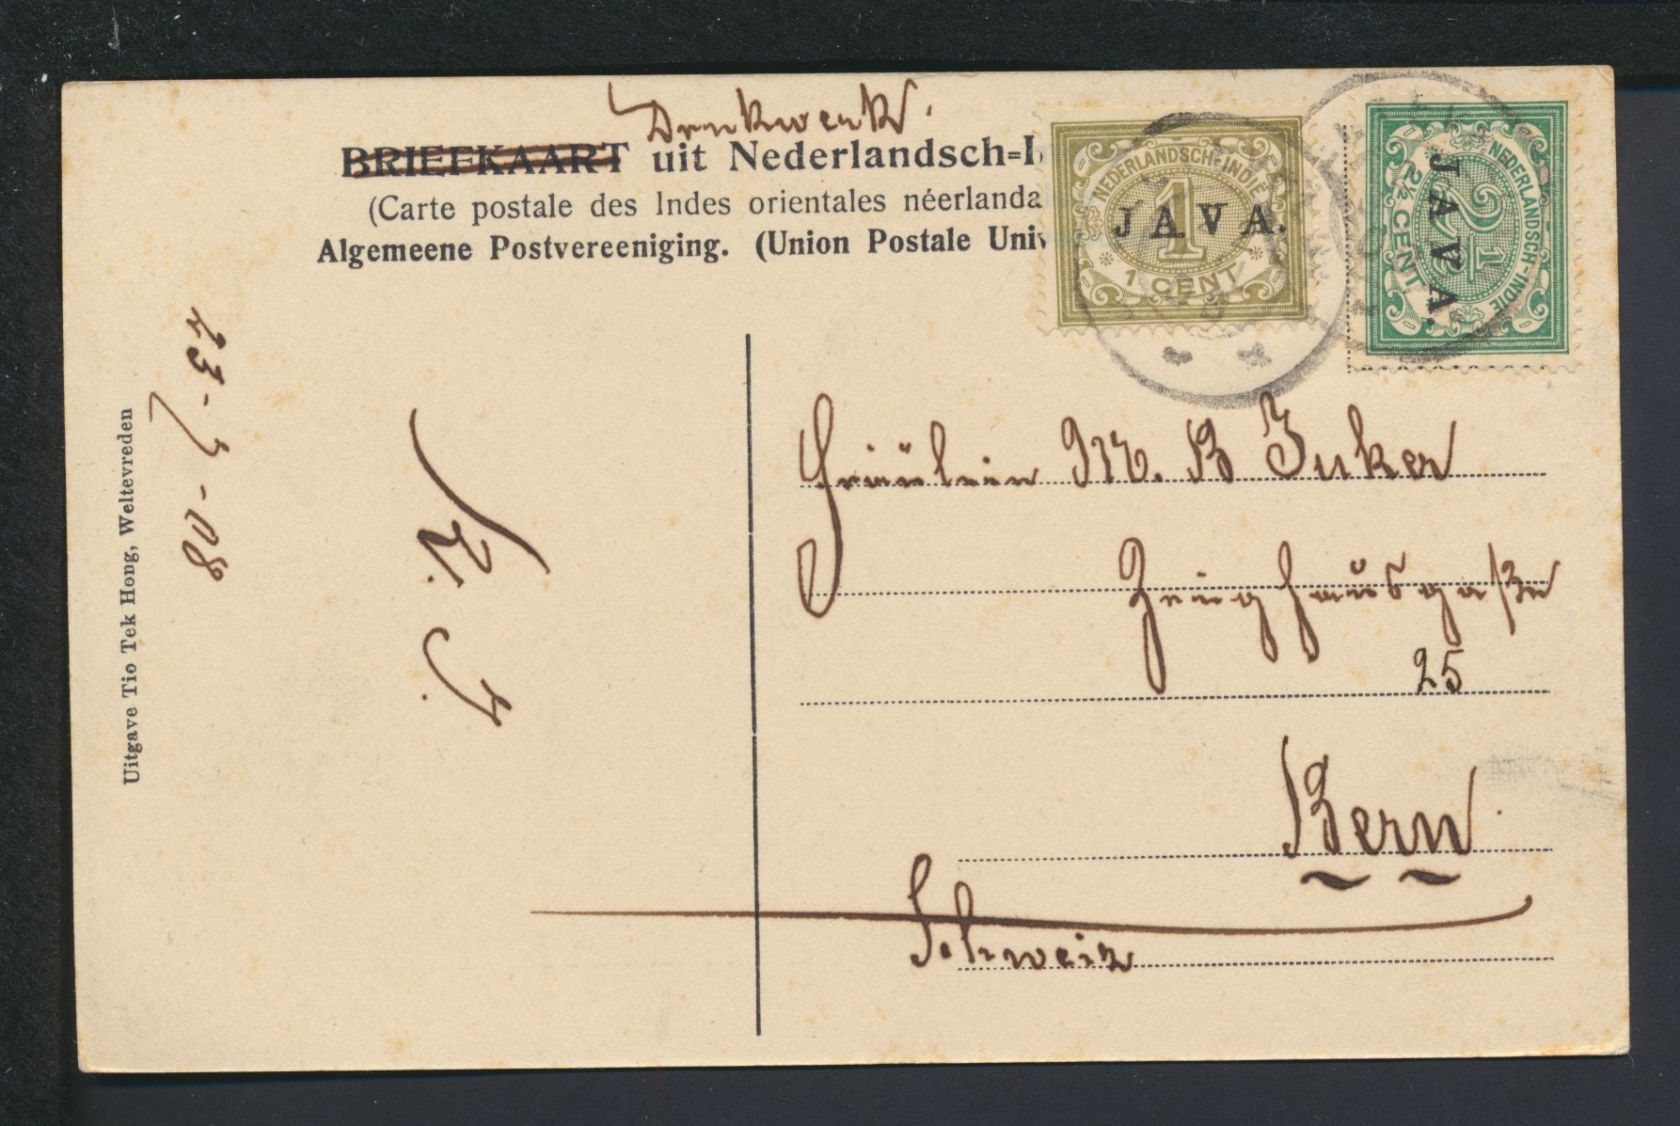 Drukwerk.
BRIEFKAART uit Nederlandsch=I
(Carte postale des Indes orientales néerlanda
Algemeene Postvereeniging. (Union Postale Univ
NEDERLANDSCH-INDIE
1
JAVA.
1 CENT
NEDERLANDSCH-INDIE
2½
JAVA.
2½ CENT
Fräulein M. B Juker
Zeughausgaße
25
Bern
Schweiz
23-3-08
Uitgave Tio Tek Hong, Weltevreden